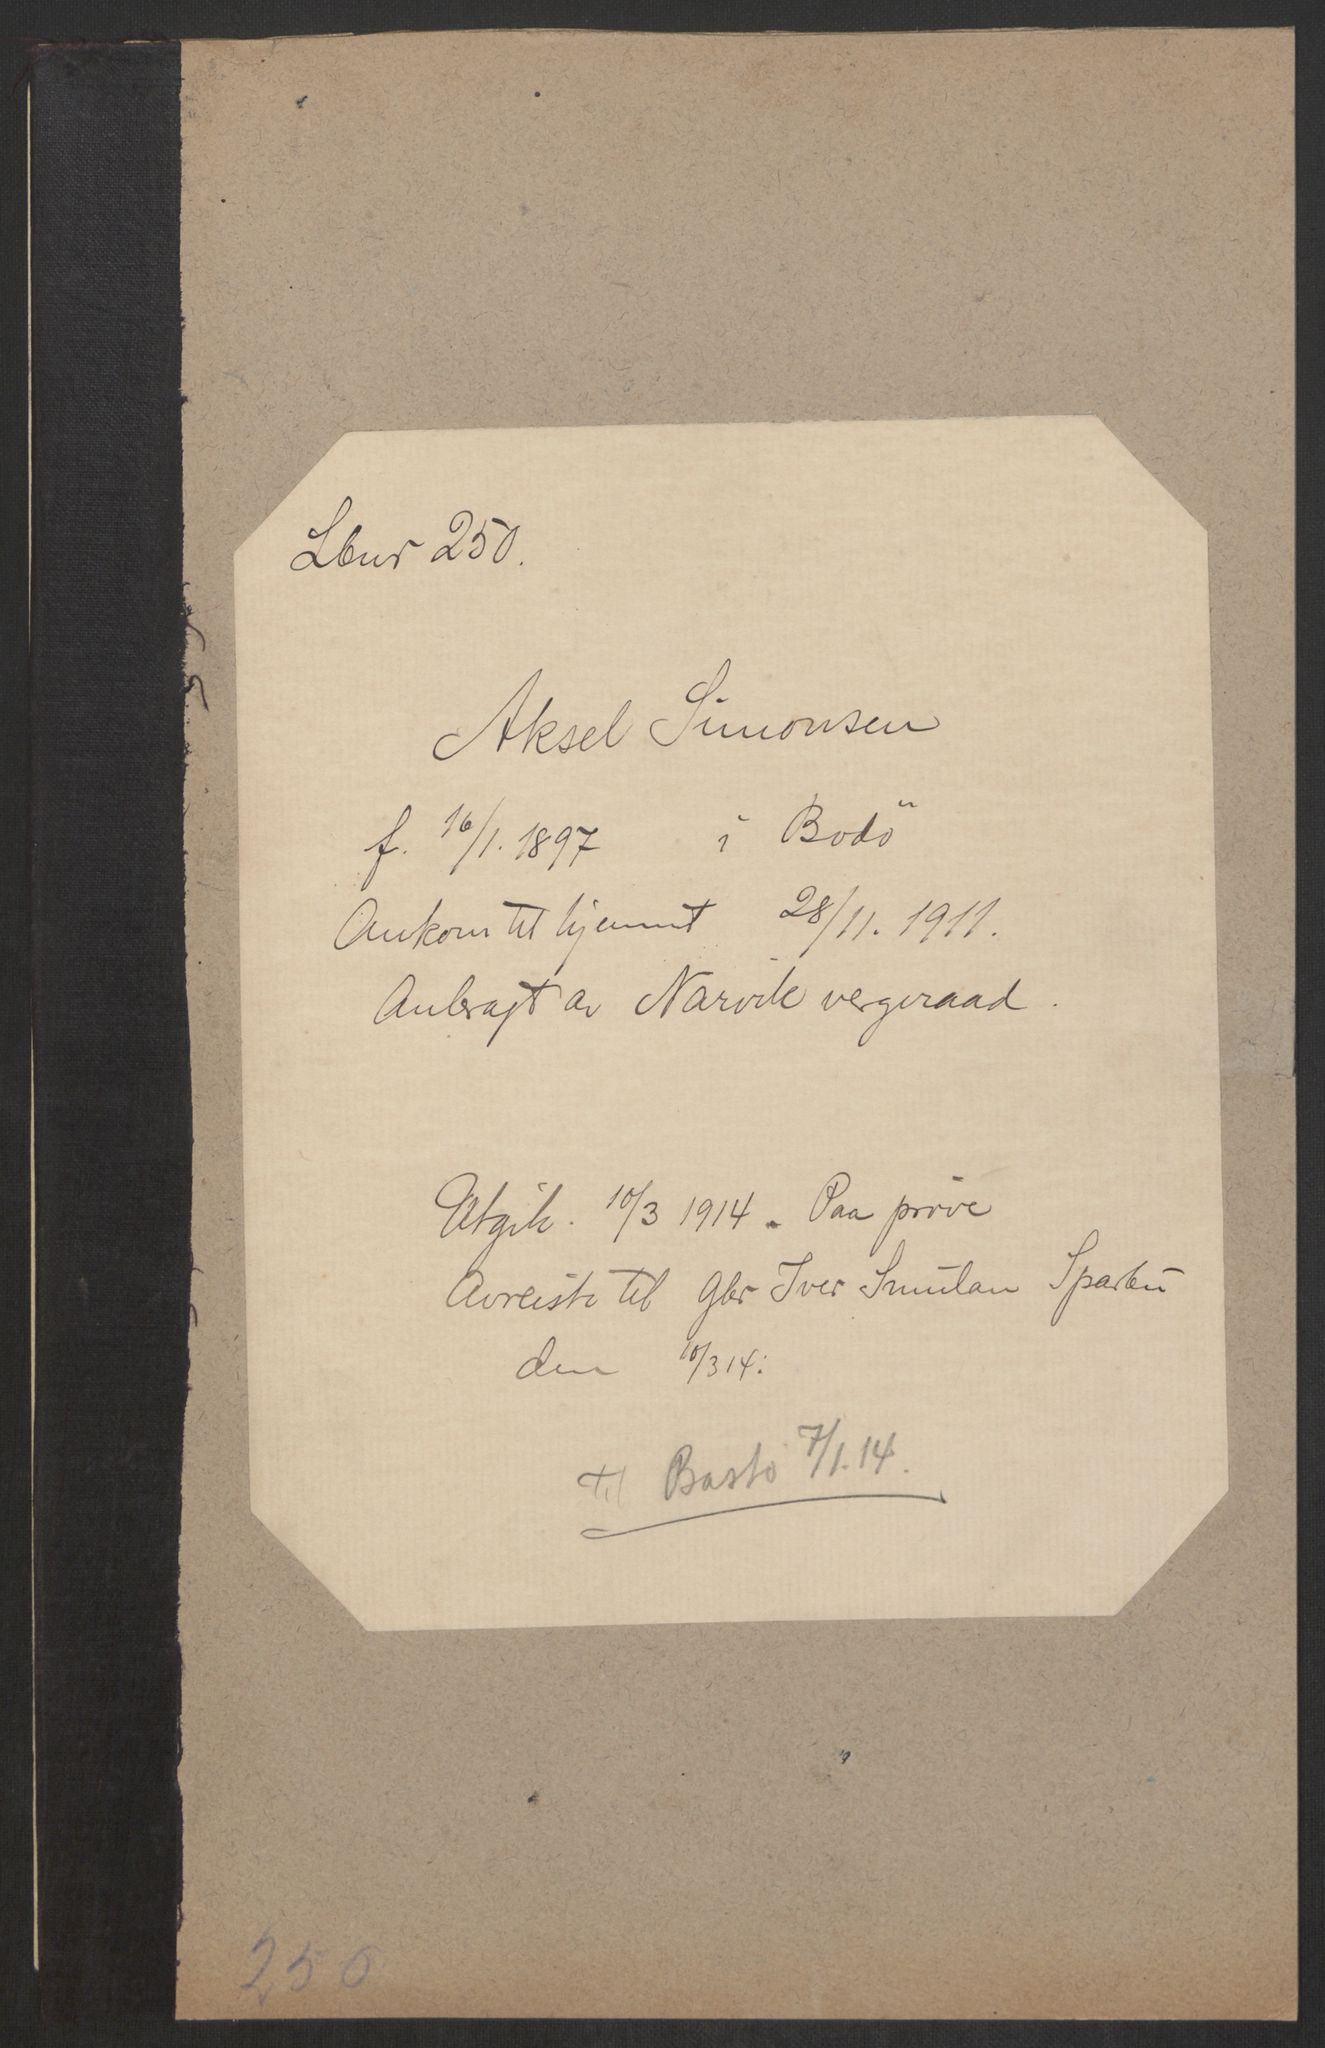 Lbnr 250.
Aksel Simonsen
f. 16/1. 1897 i Bodö
Ankom til hjemmet 28/11. 1911.
Anbragt av Narvik vergeraad.
Utgik. 10/3 1914. Paa pröve
Avreiste til gbr Iver Smulan Sparbu
den 10/3 14.
til Bastö 7/1. 14.
250